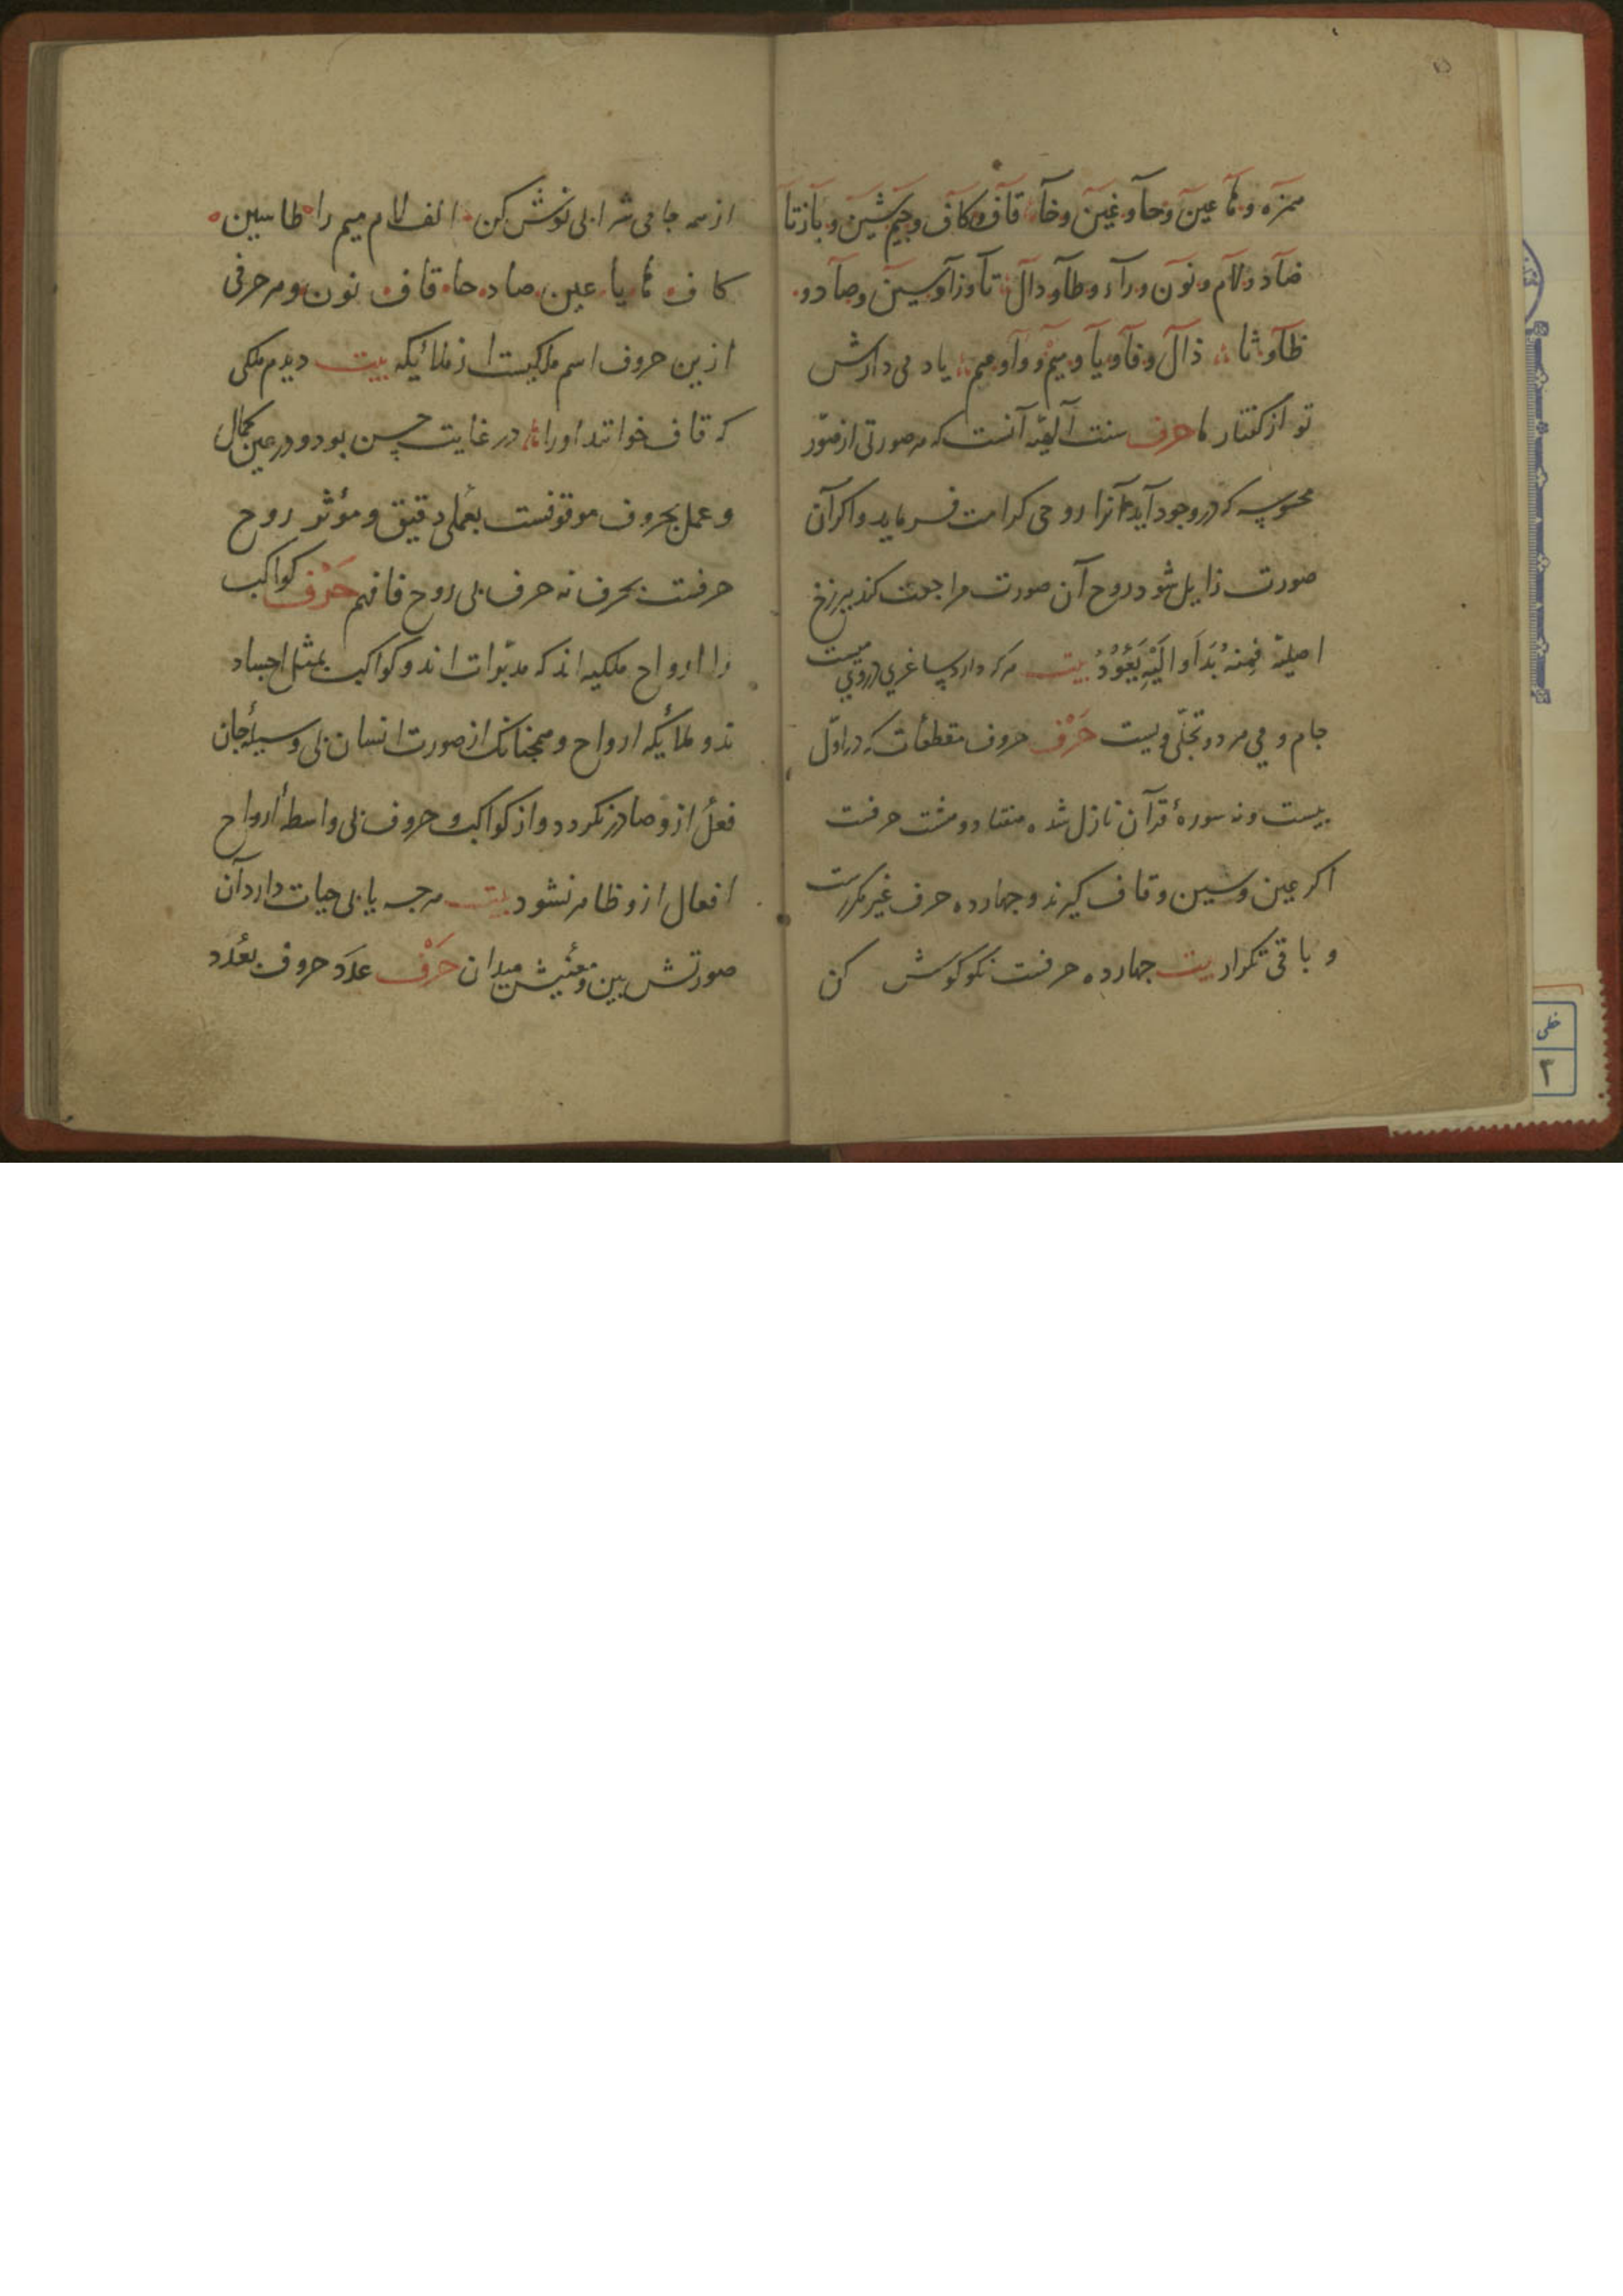 همزه و ها عین و حا و غین و خا قاف و کاف و جیم شین و باز تا
ضاد و لام و نون و را و طا و دال تا و زا و سین و صاد و
ظا و ثا ذال و فا و با و میم و واو هم یاد می دارش
تو از گفتار ما حرف سنت الهیه آنست که هر صورتی از صور
محسوسه که در وجود آید آنرا روحی کرامت فرماید و اگر آن
صورت زایل شود روح آن صورت مراجعت کند ببرزخ
اصلیه فمنه بدأ و الیه یعود بیت هر که دارد ساغری در وی میست
جام و می هر دو تجلی ویست حرف حروف مقطعات که در اول
بیست و نه سورهٔ قرآن نازل شده هفتاد و هشت حرفست
اگر عین و سین و قاف گیرند و چهارده حرف غیر مکررست
و باقی تکرار بیت چهارده حرفست نکو گوش کن
از همه جامی شرابی نوش کن الف لام میم را طا سین
کاف ها یا عین صاد حا قاف نون و هر حرفی
ازین حروف اسم ملکیست از ملائیکه بیت دیدم ملکی
که قاف خوانند او را در غایت حسن بود و در عین کمال
و عمل بحروف موقوفست بعملی دقیق و مؤثر روح
حرفست بحرف نه حرف بی روح فافهم حرف کواکب
را ارواح ملکیه اند که مدبرات اند و کواکب بمثل اجساد
ند و ملائیکه ارواح و همچنانک از صورت انسان بی وسیلهٔ جان
فعل ازو صادر نکردد و از کواکب و حروف بی واسطهٔ ارواح
افعال ازو ظاهر نشود بیت هرچه یابی حیات دارد آن
صورتش بین و معنیش میدان حرف عدد حروف بعدد
خطی
۳